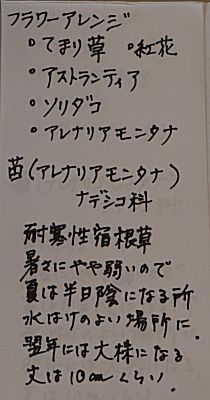 フラワーアレンジ
・てまり草 ・紅花
・アストランティア
・ソリダコ
・アレナリアモンタナ
苗(アレナリアモンタナ)
ナデシコ科
耐寒性宿根草
暑さにやや弱いので
夏は半日陰になる所
水はけのよい場所に.
翌年には大株になる
丈は10cmくらい.